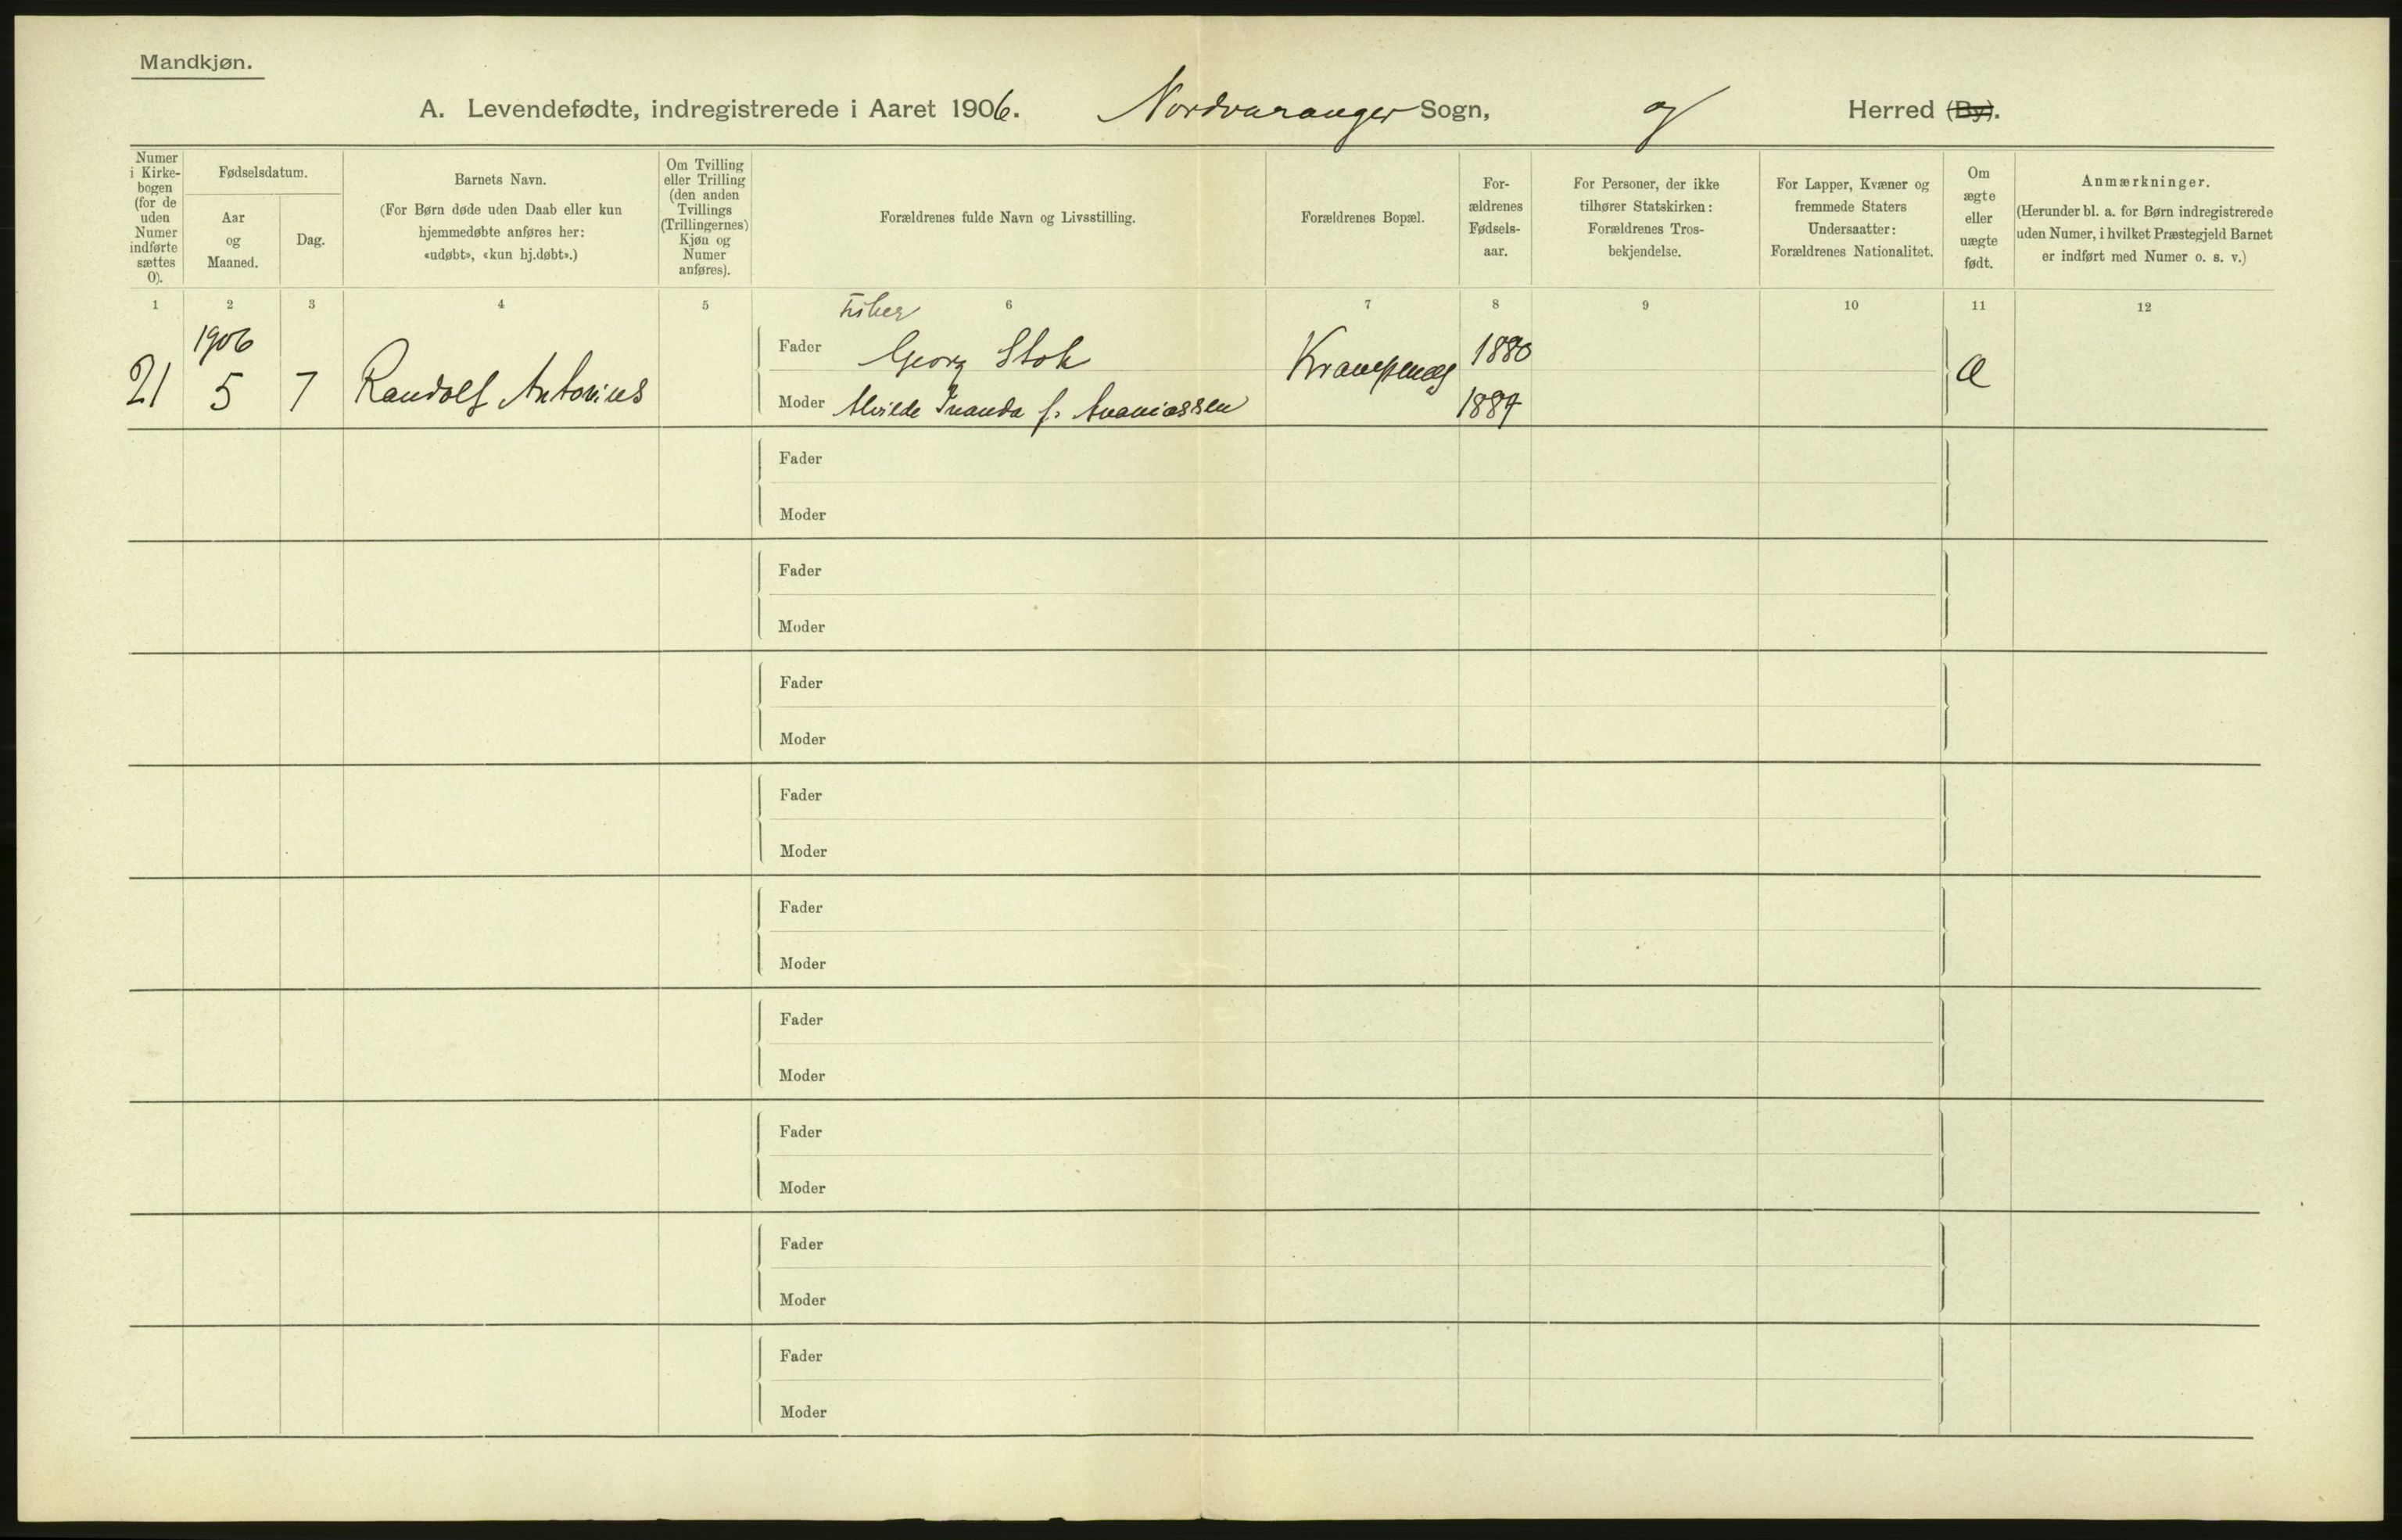 Mandkjøn.
A. Levendefødte, indregistrerede i Aaret 1906. Nordvaranger Sogn, og Herred (By).
Numer i Kirke- bogen (for de uden Numer indførte sættes 0).
Fødselsdatum.
Aar og Maaned.
Dag.
Barnets Navn.
(For Børn døde uden Daab eller kun
hjemmedøbte anføres her:
«udøbt», «kun hj.døbt».)
Om Tvilling
eller Trilling
(den anden
Tvillings
(Trillingernes)
Kjøn og
Numer
anføres).
Forældrenes fulde Navn og Livsstilling.
Forældrenes Bopæl.
For-
ældrenes
Fødsels-
aar.
For Personer, der ikke
tilhører Statskirken:
Forældrenes Tros-
bekjendelse.
For Lapper, Kvæner og
fremmede Staters
Undersaatter:
Forældrenes Nationalitet.
Om
ægte
eller
uægte
født.
Anmærkninger.
(Herunder bl. a. for Børn indregistrerede
uden Numer, i hvilket Præstegjeld Barnet
er indført med Numer o. s. v.)
1 2 3 4 5 6 7 8 9 10 11 12
Fisker
1906
Fader Georg Stok 1880
21 5 7 Randolf Antonius
Moder f. Ananiassen
Fader
Moder
Fader
Moder
Fader
Moder
Fader
Moder
Fader
Moder
Fader
Moder
Fader
Moder
Fader
Moder
Fader
Moder